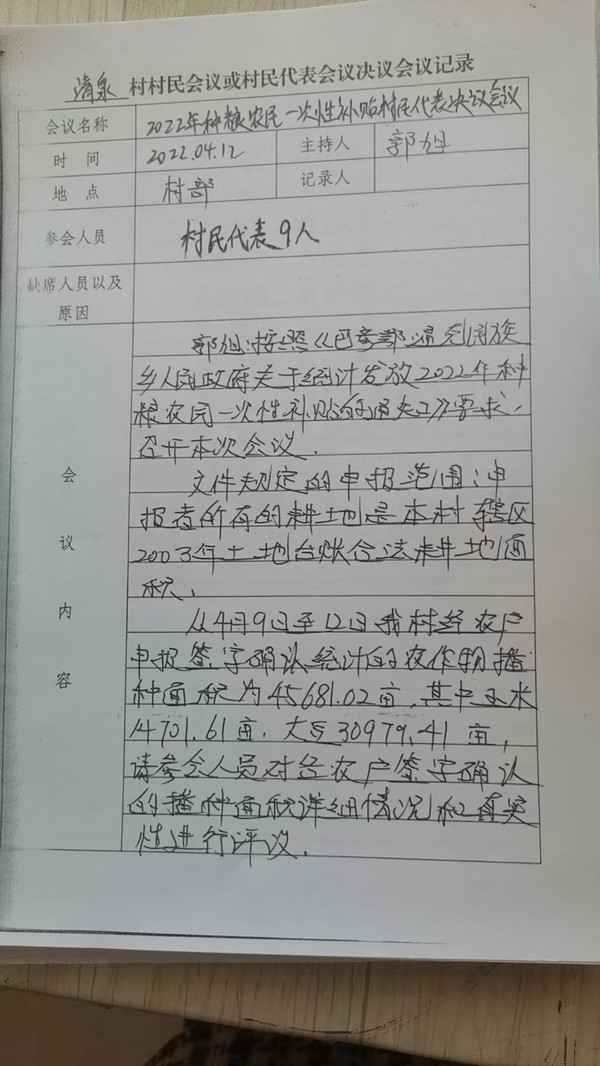 清泉 村村民会议或村民代表会议决议会议记录
会议名称 2022年种粮农民一次性补贴村民代表决议会议
时 间 2022.04.12 主持人 郭旭
地 点 村部 记录人
参会人员 村民代表9人
缺席人员以及
原因
会议内容
郭旭:按照《巴彦鄂温克民族
乡人民政府关于统计发放2022年种
粮农民一次性补贴的通知》要求,
召开本次会议.
文件规定的申报范围:申
报者所有的耕土地是本村辖区
2003年土地台账合法耕地面
积.
从4月9日至12日我村经农户
申报签字确认统计的农作物播
种面积为45681.02亩,其中玉米
14701.61亩.大豆30979.41亩,
请参会人员对经农户签字确认
的播种面积详细情况和真实
性进行评议.